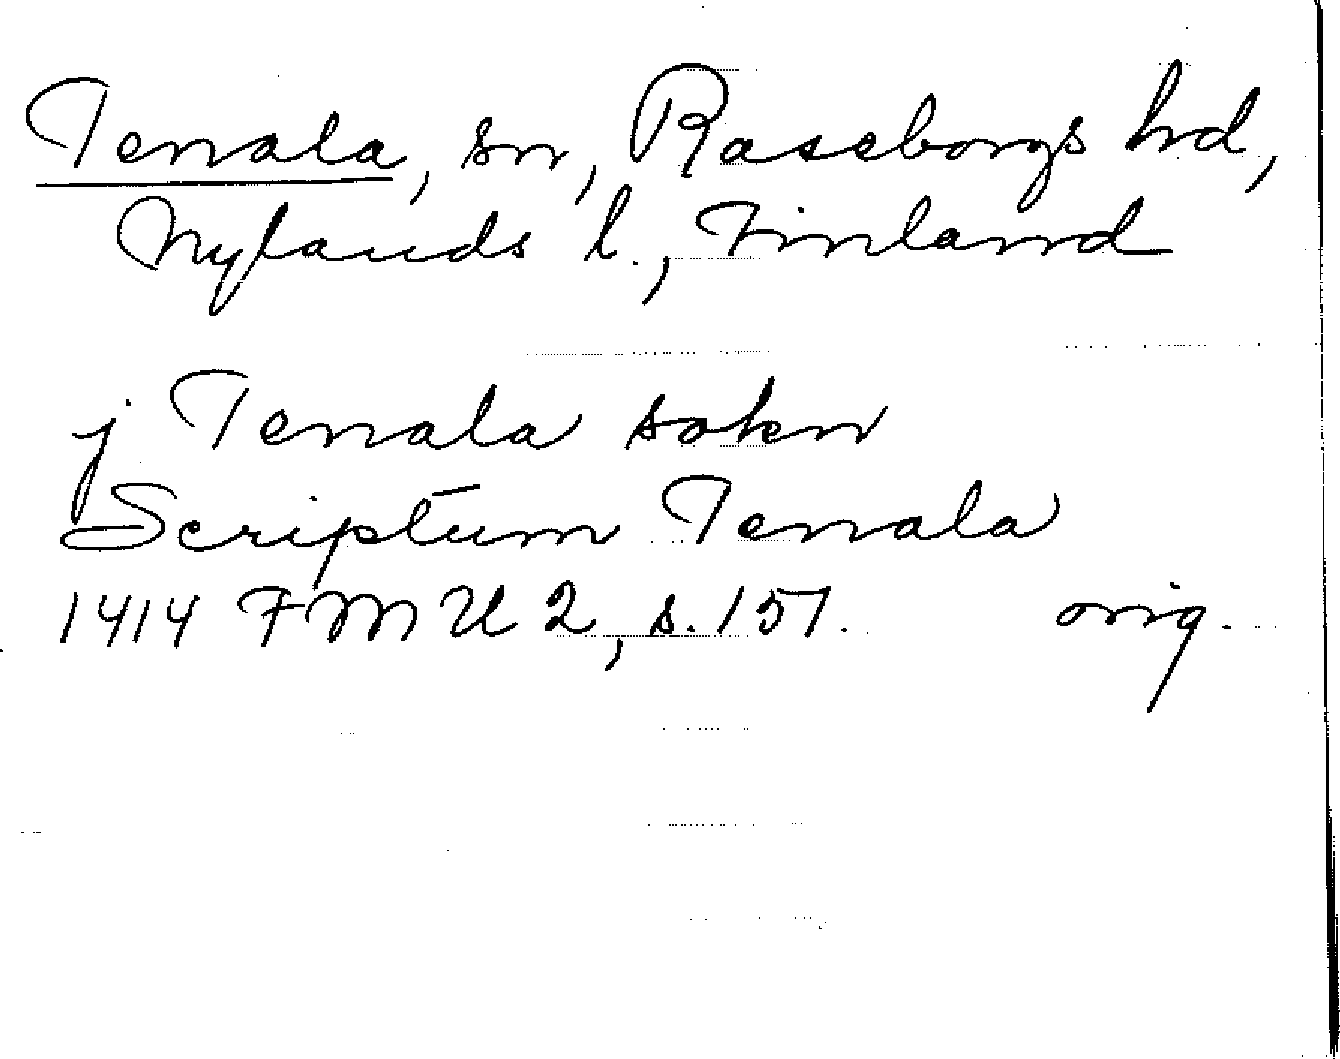 Tenala, sn, Raseborgs hd,
Nylands l., Finland
j Tenala sokn
Scriptum Tenala
1414 FMU 2, s. 157. orig.